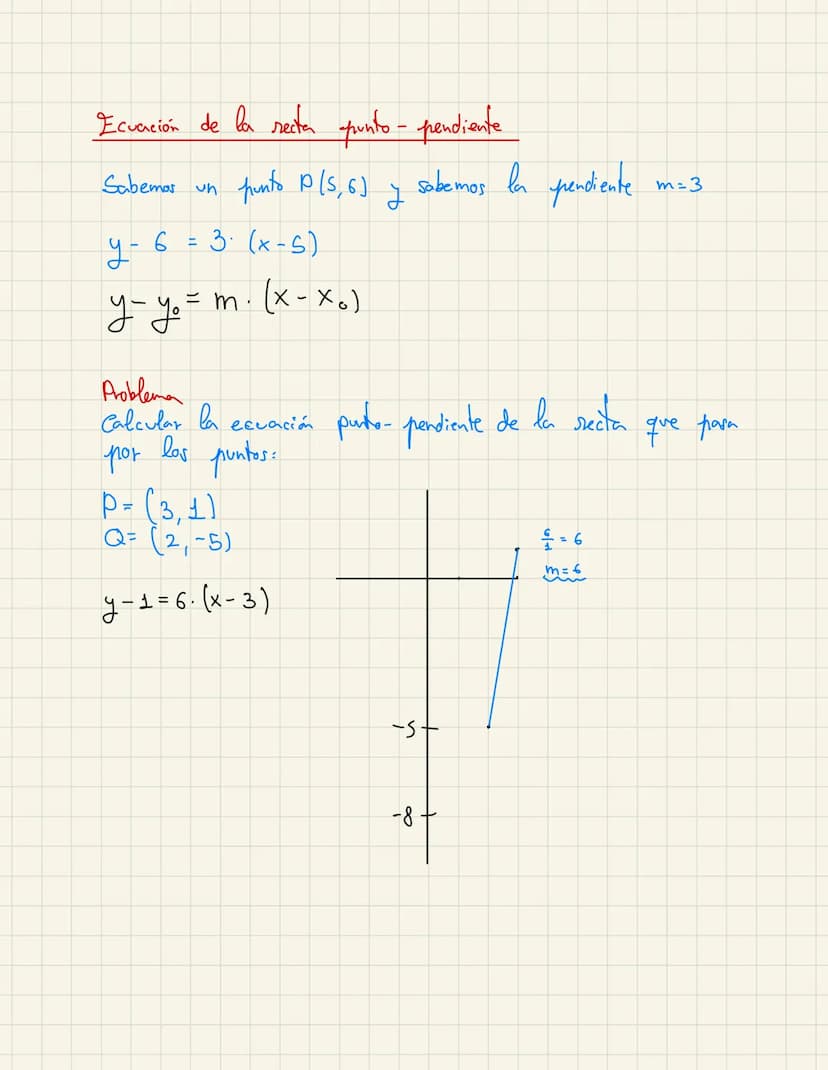 Ecuación de la recta punto-pendiente
Sabemos un punto P(5,6) y sabemos la pendiente m=3
y-6 = 3·(x-5)
y-y₀ = m·(x-x₀)
Problema
Calcular la ecuación punto-pendiente de la recta que pasa
por los puntos:
P= (3,1)
Q= (2,-5)
6/1 = 6
m=6
y-1=6·(x-3)
-5
-8